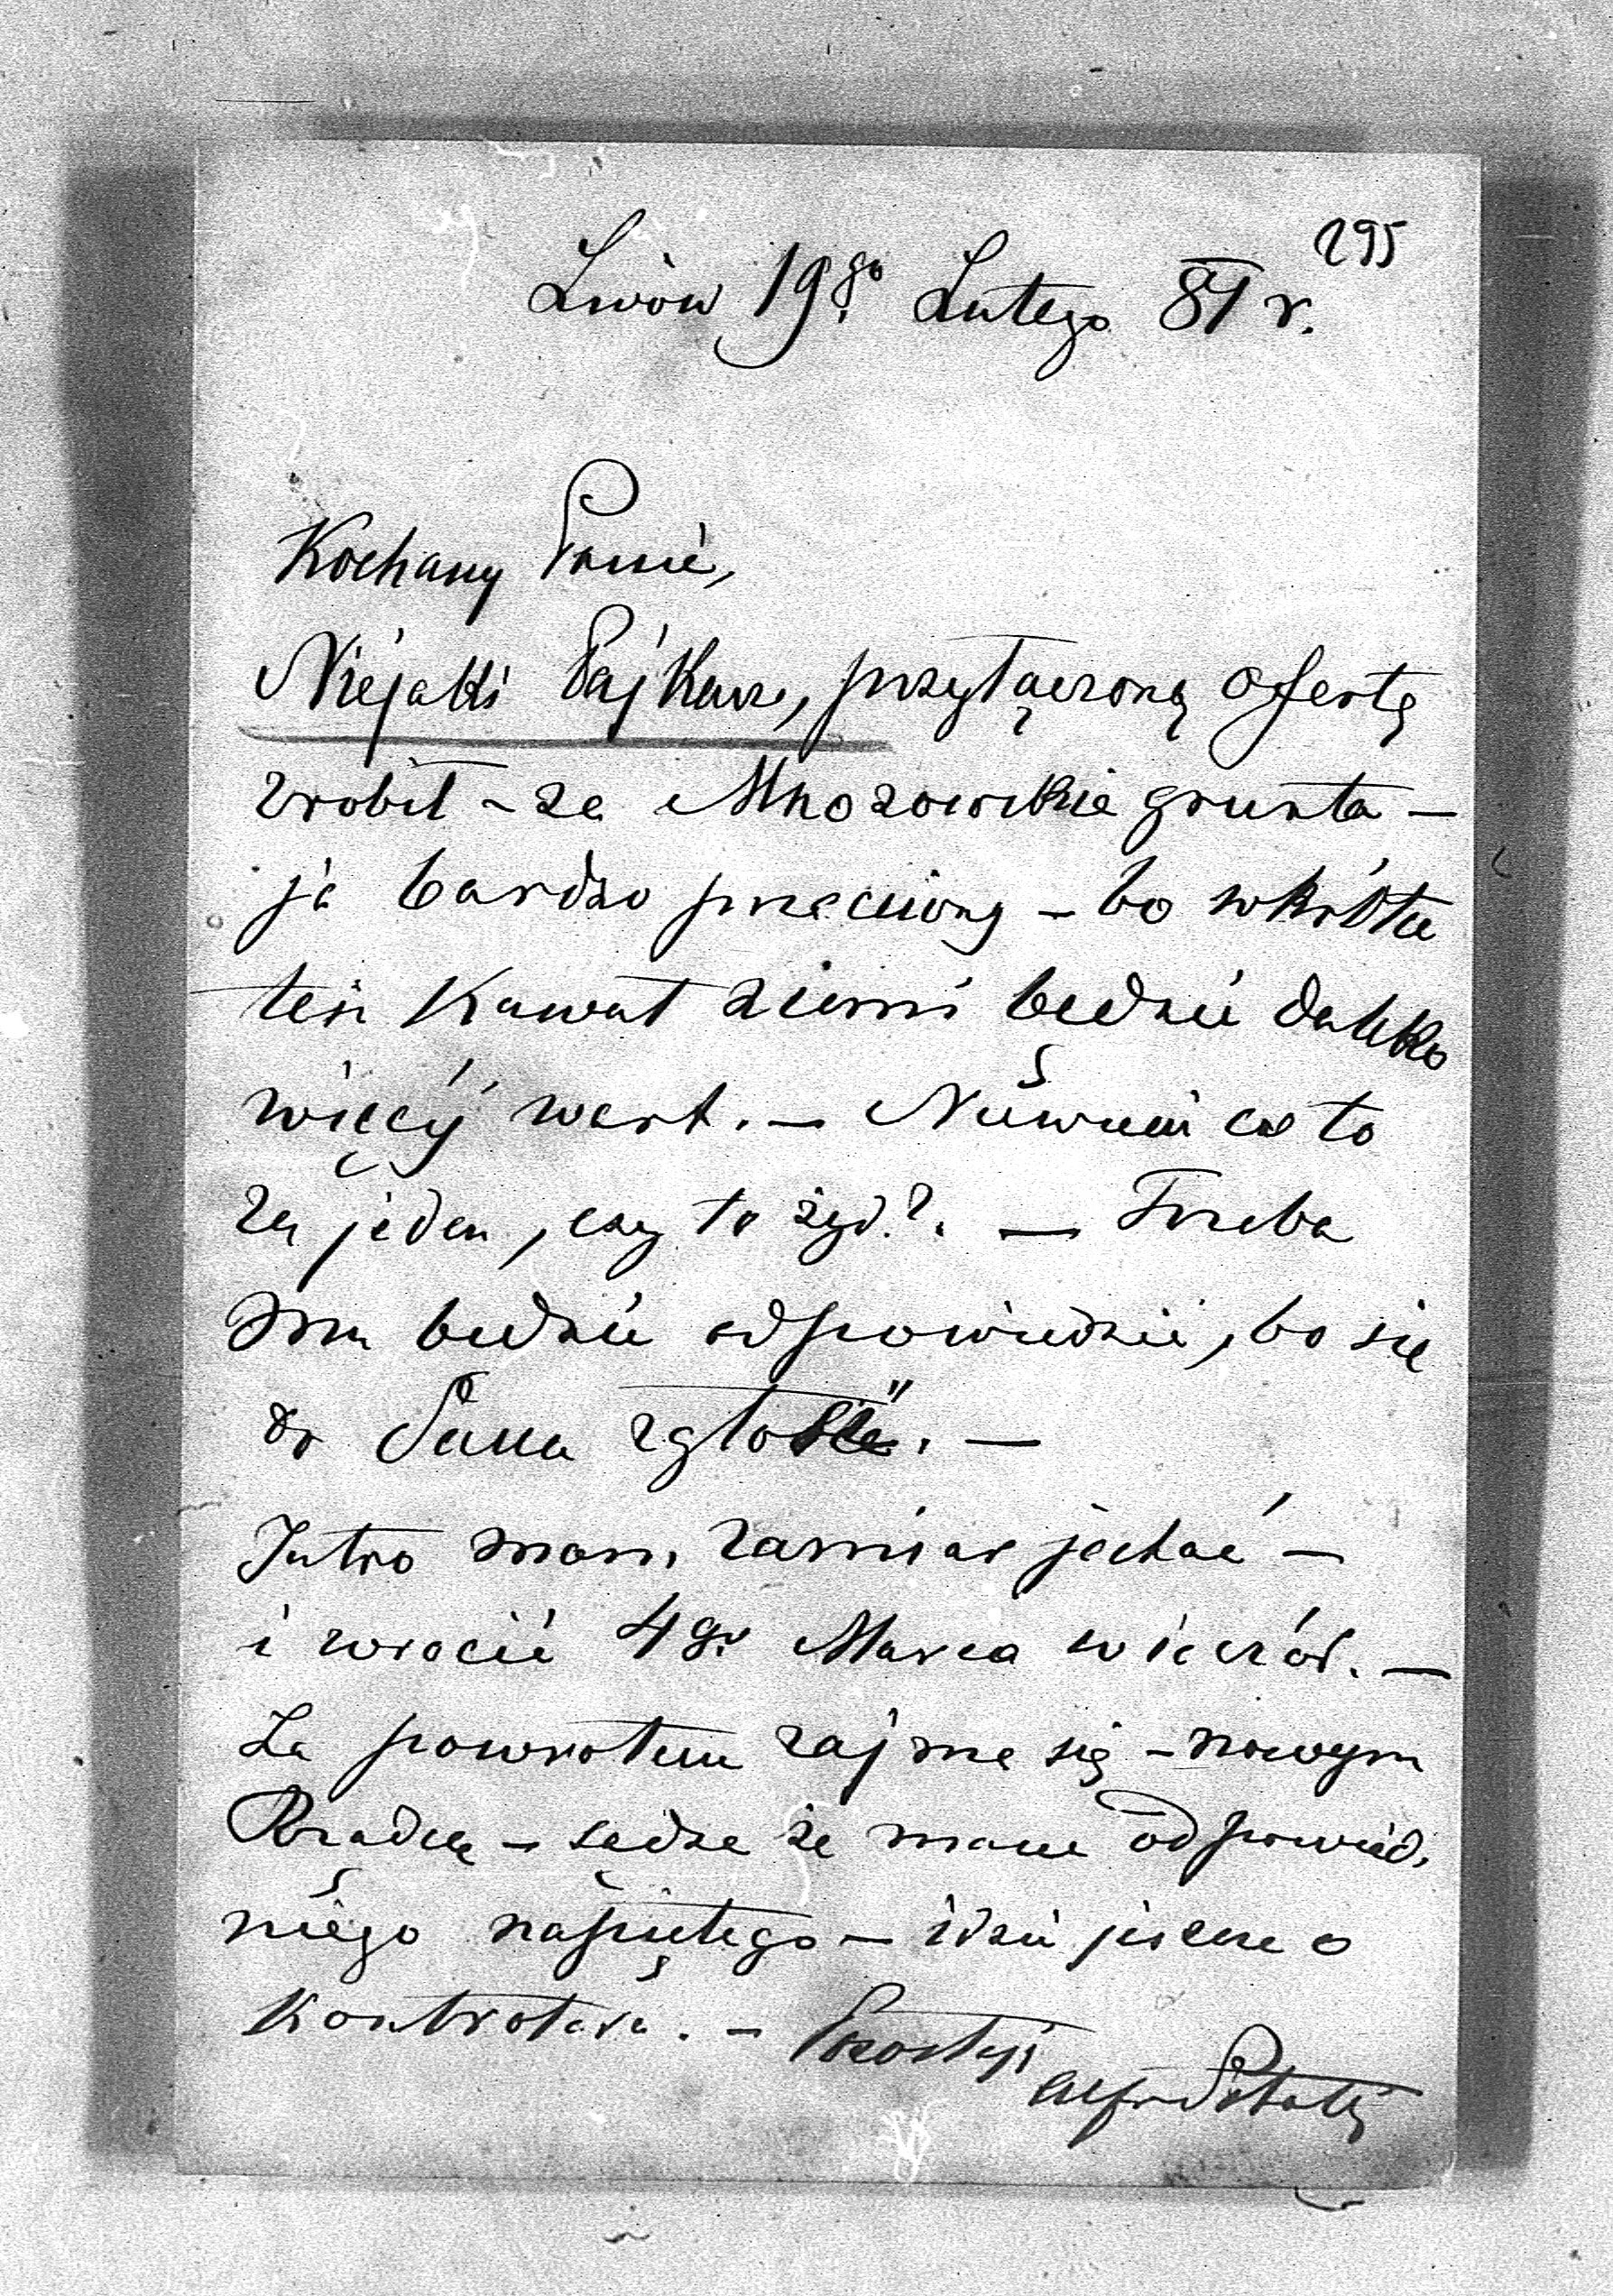 295
Lwów 19go Lutego 81 r.
Kochany Panie,
Niejakki Pajkarz, przyłączoną ofertę
zrobił – za grunta –
ja bardzo przeciwny – bo wkrótce
ten kawał ziemi bedzie daleko
więcéj wart. – Niewiem co to
za jeden, czy to żyd?. – Trzeba
mu bedzie odpowiedzić, bo się
do Pana zgłosić. –
Jutro mam zamiar jechać –
i wrócić 4go Marca wieczór. –
Za powrotem zajme się – nowym
Rządcą – sadze że mam odpowied.
niego – idzie jeszcze o
Kontrolora. – Pozostaję
Alfred Potocki